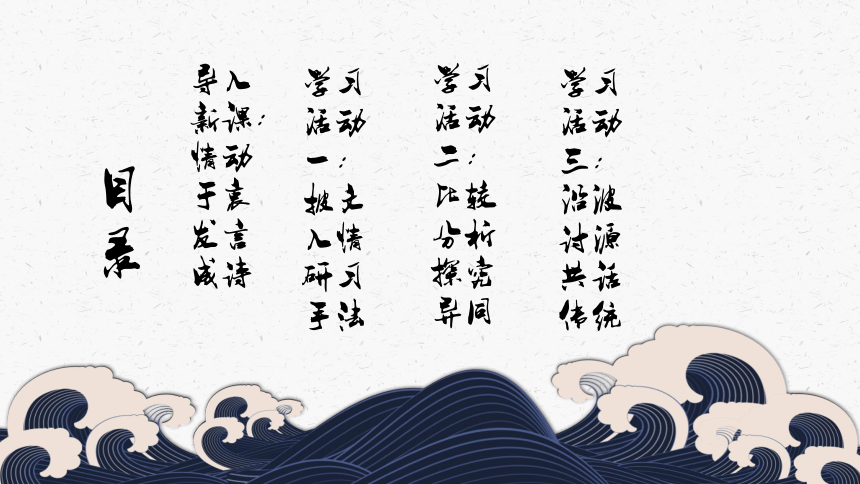 目录
导入
新课：
情动
于衷
发言
成诗
学习
活动
一：
披文
入情
研习
手法
学习
活动
二：
比较
分析
探究
异同
学习
活动
三：
沿波
讨源
共话
传统